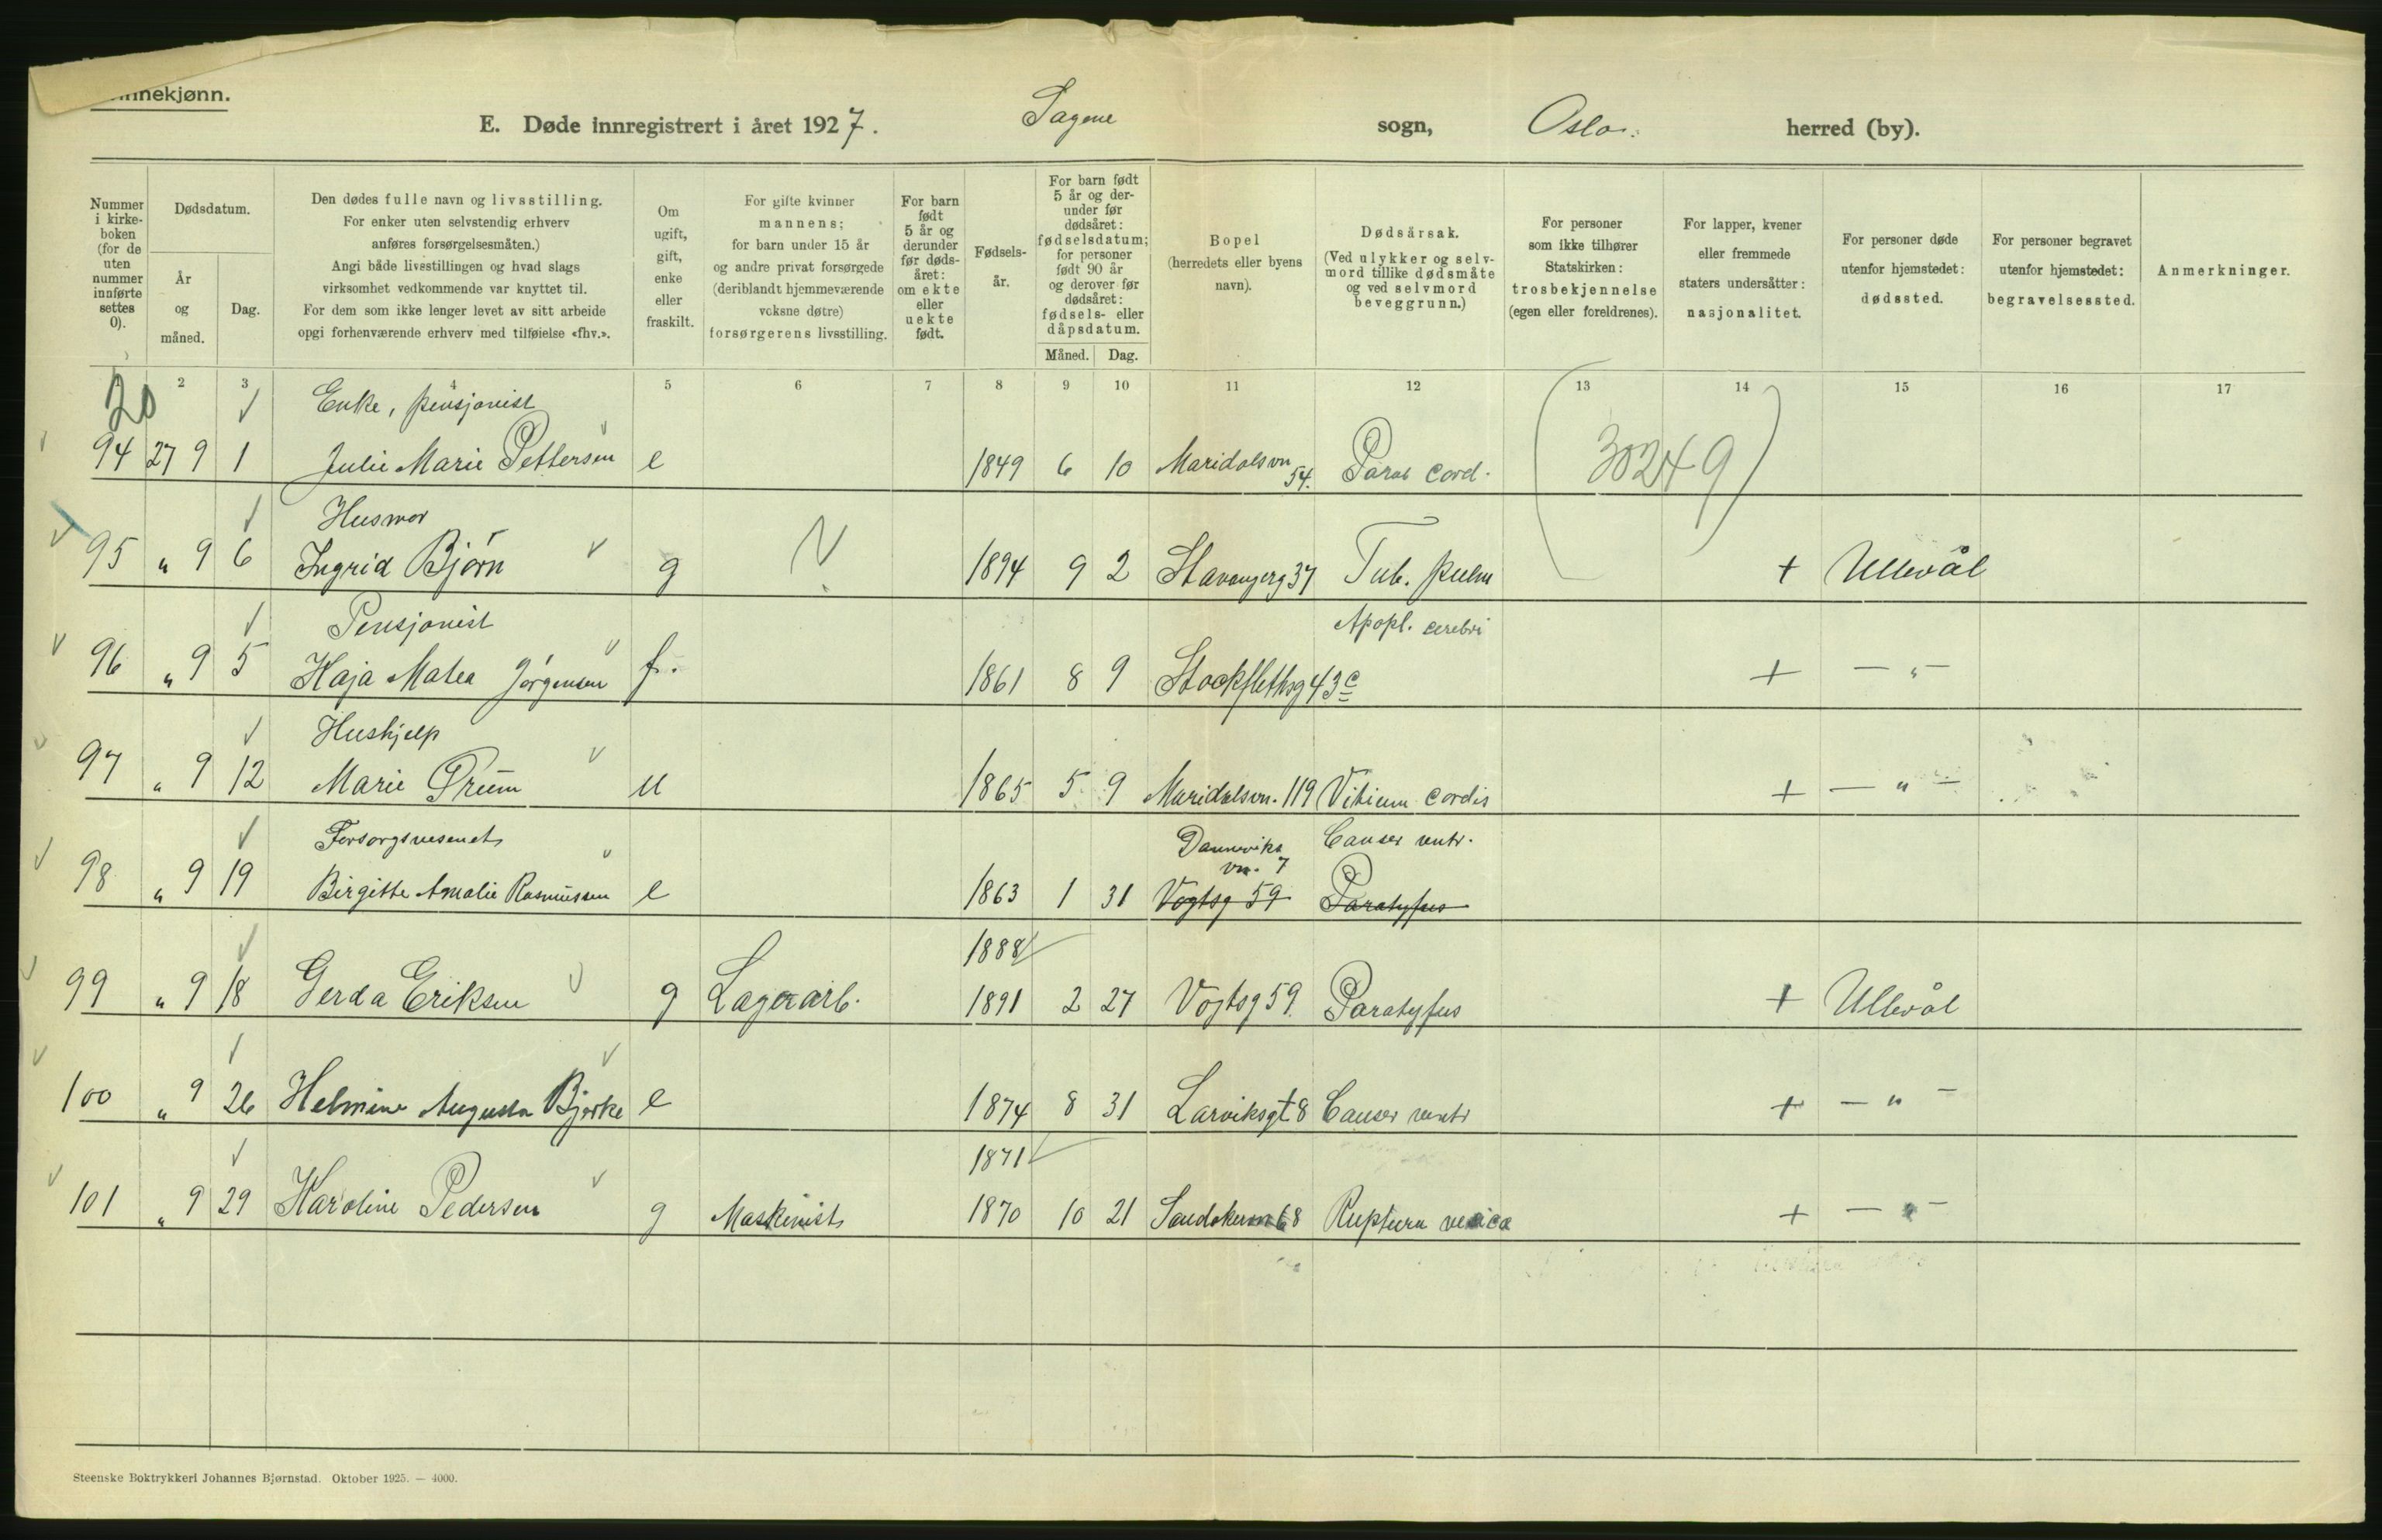 nnekjønn.
E. Døde innregistrert i året 1927. Sagene sogn, Oslo. herred (by).
Nummer i kirkeboken (for de uten nummer innførte settes 0).
Dødsdatum.
År og måned.
Dag.
Den dødes fulle navn og livsstilling.
For enker uten selvstendig erhverv
anføres forsørgelsesmåten.)
Angi både livsstillingen og hvad slags
virksomhet vedkommende var knyttet til.
For dem som ikke lenger levet av sitt arbeide
opgi forhenværende erhverv med tilføielse «fhv.».
Om ugift, gift, enke eller fraskilt.
For gifte kvinner
mannens;
for barn under 15 år
og andre privat forsørgede
(deriblandt hjemmeværende
voksne døtre)
forsørgerens livsstilling.
For barn født 5 år og derunder før dødsåret: om ekte eller uekte født.
Fødselsår.
For barn født 5 år og derunder før dødsåret: fødselsdatum; for personer født 90 år og derover før dødsåret: fødsels- eller dåpsdatum.
Måned. Dag.
Bopel
(herredets eller byens
navn).
Dødsårsak.
(Ved ulykker og selvmord tillike dødsmåte og ved selvmord beveggrunn.)
For personer
som ikke tilhører
Statskirken:
trosbekjennelse
(egen eller foreldrenes).
For lapper, kvener
eller fremmede
staters undersåtter:
nasjonalitet.
For personer døde
utenfor hjemstedet:
dødssted.
For personer begravet
utenfor hjemstedet:
begravelsessted.
Anmerkninger.
1 2 3 4 5 6 7 8 9 10 11 12 13 14 15 16 17
20
Enke, pensjonist
94 27 9 1 Julie Marie Pettersen e 1849 6 10 Maridalsvn 54. Paral cord. 30249
Husmor
95 " 9 6 Ingrid Bjørn g 1894 9 2 Stavangerg 37 Tub. pulm + Ullevål
Pensjonist Apopl. cerebri
96 " 9 5 Kaja Matea Jørgensen f. 1861 8 9 Stockflethsg 43c + — " —
Hushjelp
97 " 9 12 Marie Prüm u 1865 5 9 Maridalsvn. 119 Vitium cordis + — " —
Forsorgsvesenet Danneviks vn. 7 Cancer ventr.
98 " 9 19 Birgitte Amalie Rasmussen e 1863 1 31 Vogtsg 59 Paratyfus
1888
99 " 9 18 Gerda Eriksen g Lagerarb. 1891 2 27 Vogtsg 59. Paratyfus + Ullevål
100 " 9 26 Helmine Augusta Bjerke e 1874 8 31 Larviksgt. 8 Cancer ventr + — " —
1871
101 " 9 29 Karoline Pedersen g Maskinist 1870 10 21 68 Ruptura vesica + — " —
Steenske Boktrykkeri Johannes Bjørnstad. Oktober 1925. — 4000.